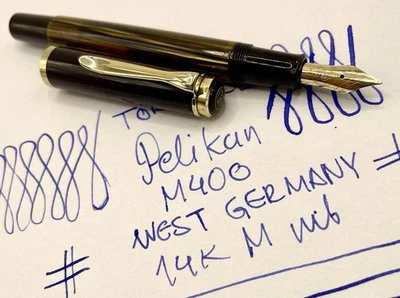 Pelikan
M400
WEST GERMANY #
# 14K M nib